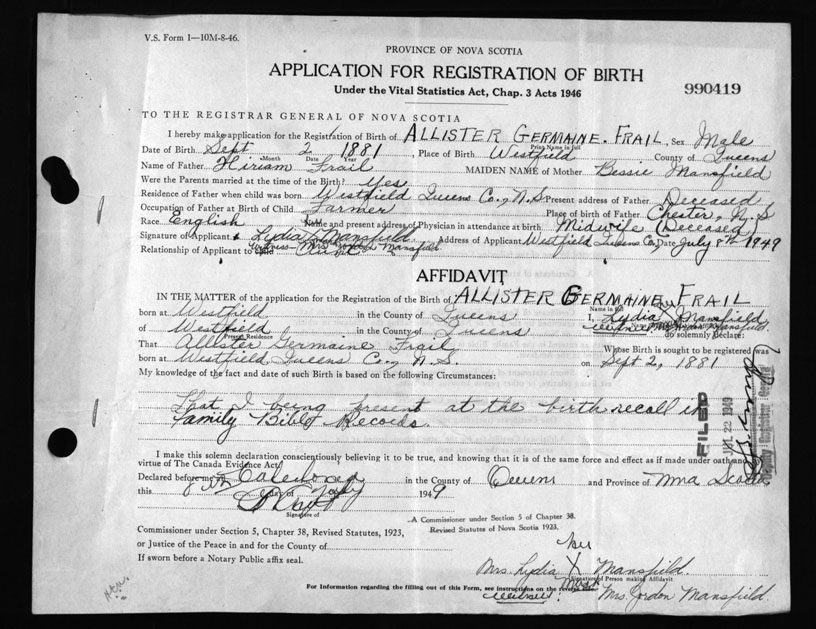 V.S. Form 1—10M-8-46.
PROVINCE OF NOVA SCOTIA
APPLICATION FOR REGISTRATION OF BIRTH
990419
Under the Vital Statistics Act, Chap. 3 Acts 1946
TO THE REGISTRAR GENERAL OF NOVA SCOTIA
I hereby make application for the Registration of Birth of ALLISTER GERMAINE. FRAIL, Sex Male
Print Name in full
Date of Birth Sept 2 1881, Place of Birth Westfield County of Queens
Month Date Year
Name of Father Hiriam Frail MAIDEN NAME of Mother Bessie Mansfield
Were the Parents married at the time of the Birth? Yes
Residence of Father when child was born Westfield Queens Co., N.S Present address of Father Deceased
Occupation of Father at Birth of Child Farmer Place of birth of Father Chester, N.S
Race English Name and present address of Physician in attendance at birth Midwife (Deceased)
Signature of Applicant Lydia X Mansfield. Address of Applicant Westfield Queens Co., Date July 8th 1949
Witness Mrs Gordon Mansfield.
Relationship of Applicant to child Aunt
AFFIDAVIT
IN THE MATTER of the application for the Registration of the Birth of ALLISTER GERMAINE FRAIL
Name in full
born at Westfield in the County of Queens I, Lydia X Mansfield
of Westfield in the County of Queens
Present Residence
do solemnly declare:
That Allister Germaine Frail Whose Birth is sought to be registered was
born at Westfield Queens Co., N.S on Sept 2, 1881
My knowledge of the fact and date of such Birth is based on the following Circumstances:
That I being present at the birth recall in
Family Bible Records.
FILED
JUL 22 1949
Deputy Registrar General
I make this solemn declaration conscientiously believing it to be true, and knowing that it is of the same force and effect as if made under oath and by
virtue of The Canada Evidence Act.
Declared before me at Caledonia in the County of Queens and Province of Nova Scotia
this 8th day of July 1949
Signature of
A Commissioner under Section 5 of Chapter 38.
Revised Statutes of Nova Scotia 1923.
Commissioner under Section 5, Chapter 38, Revised Statutes, 1923,
or Justice of the Peace in and for the County of
If sworn before a Notary Public affix seal.
her
Mrs. Lydia X Mansfield.
Signature of Person making Affidavit
mark
For Information regarding the filling out of this Form, see instructions on the reverse side
witness: Mrs. Gordon Mansfield.